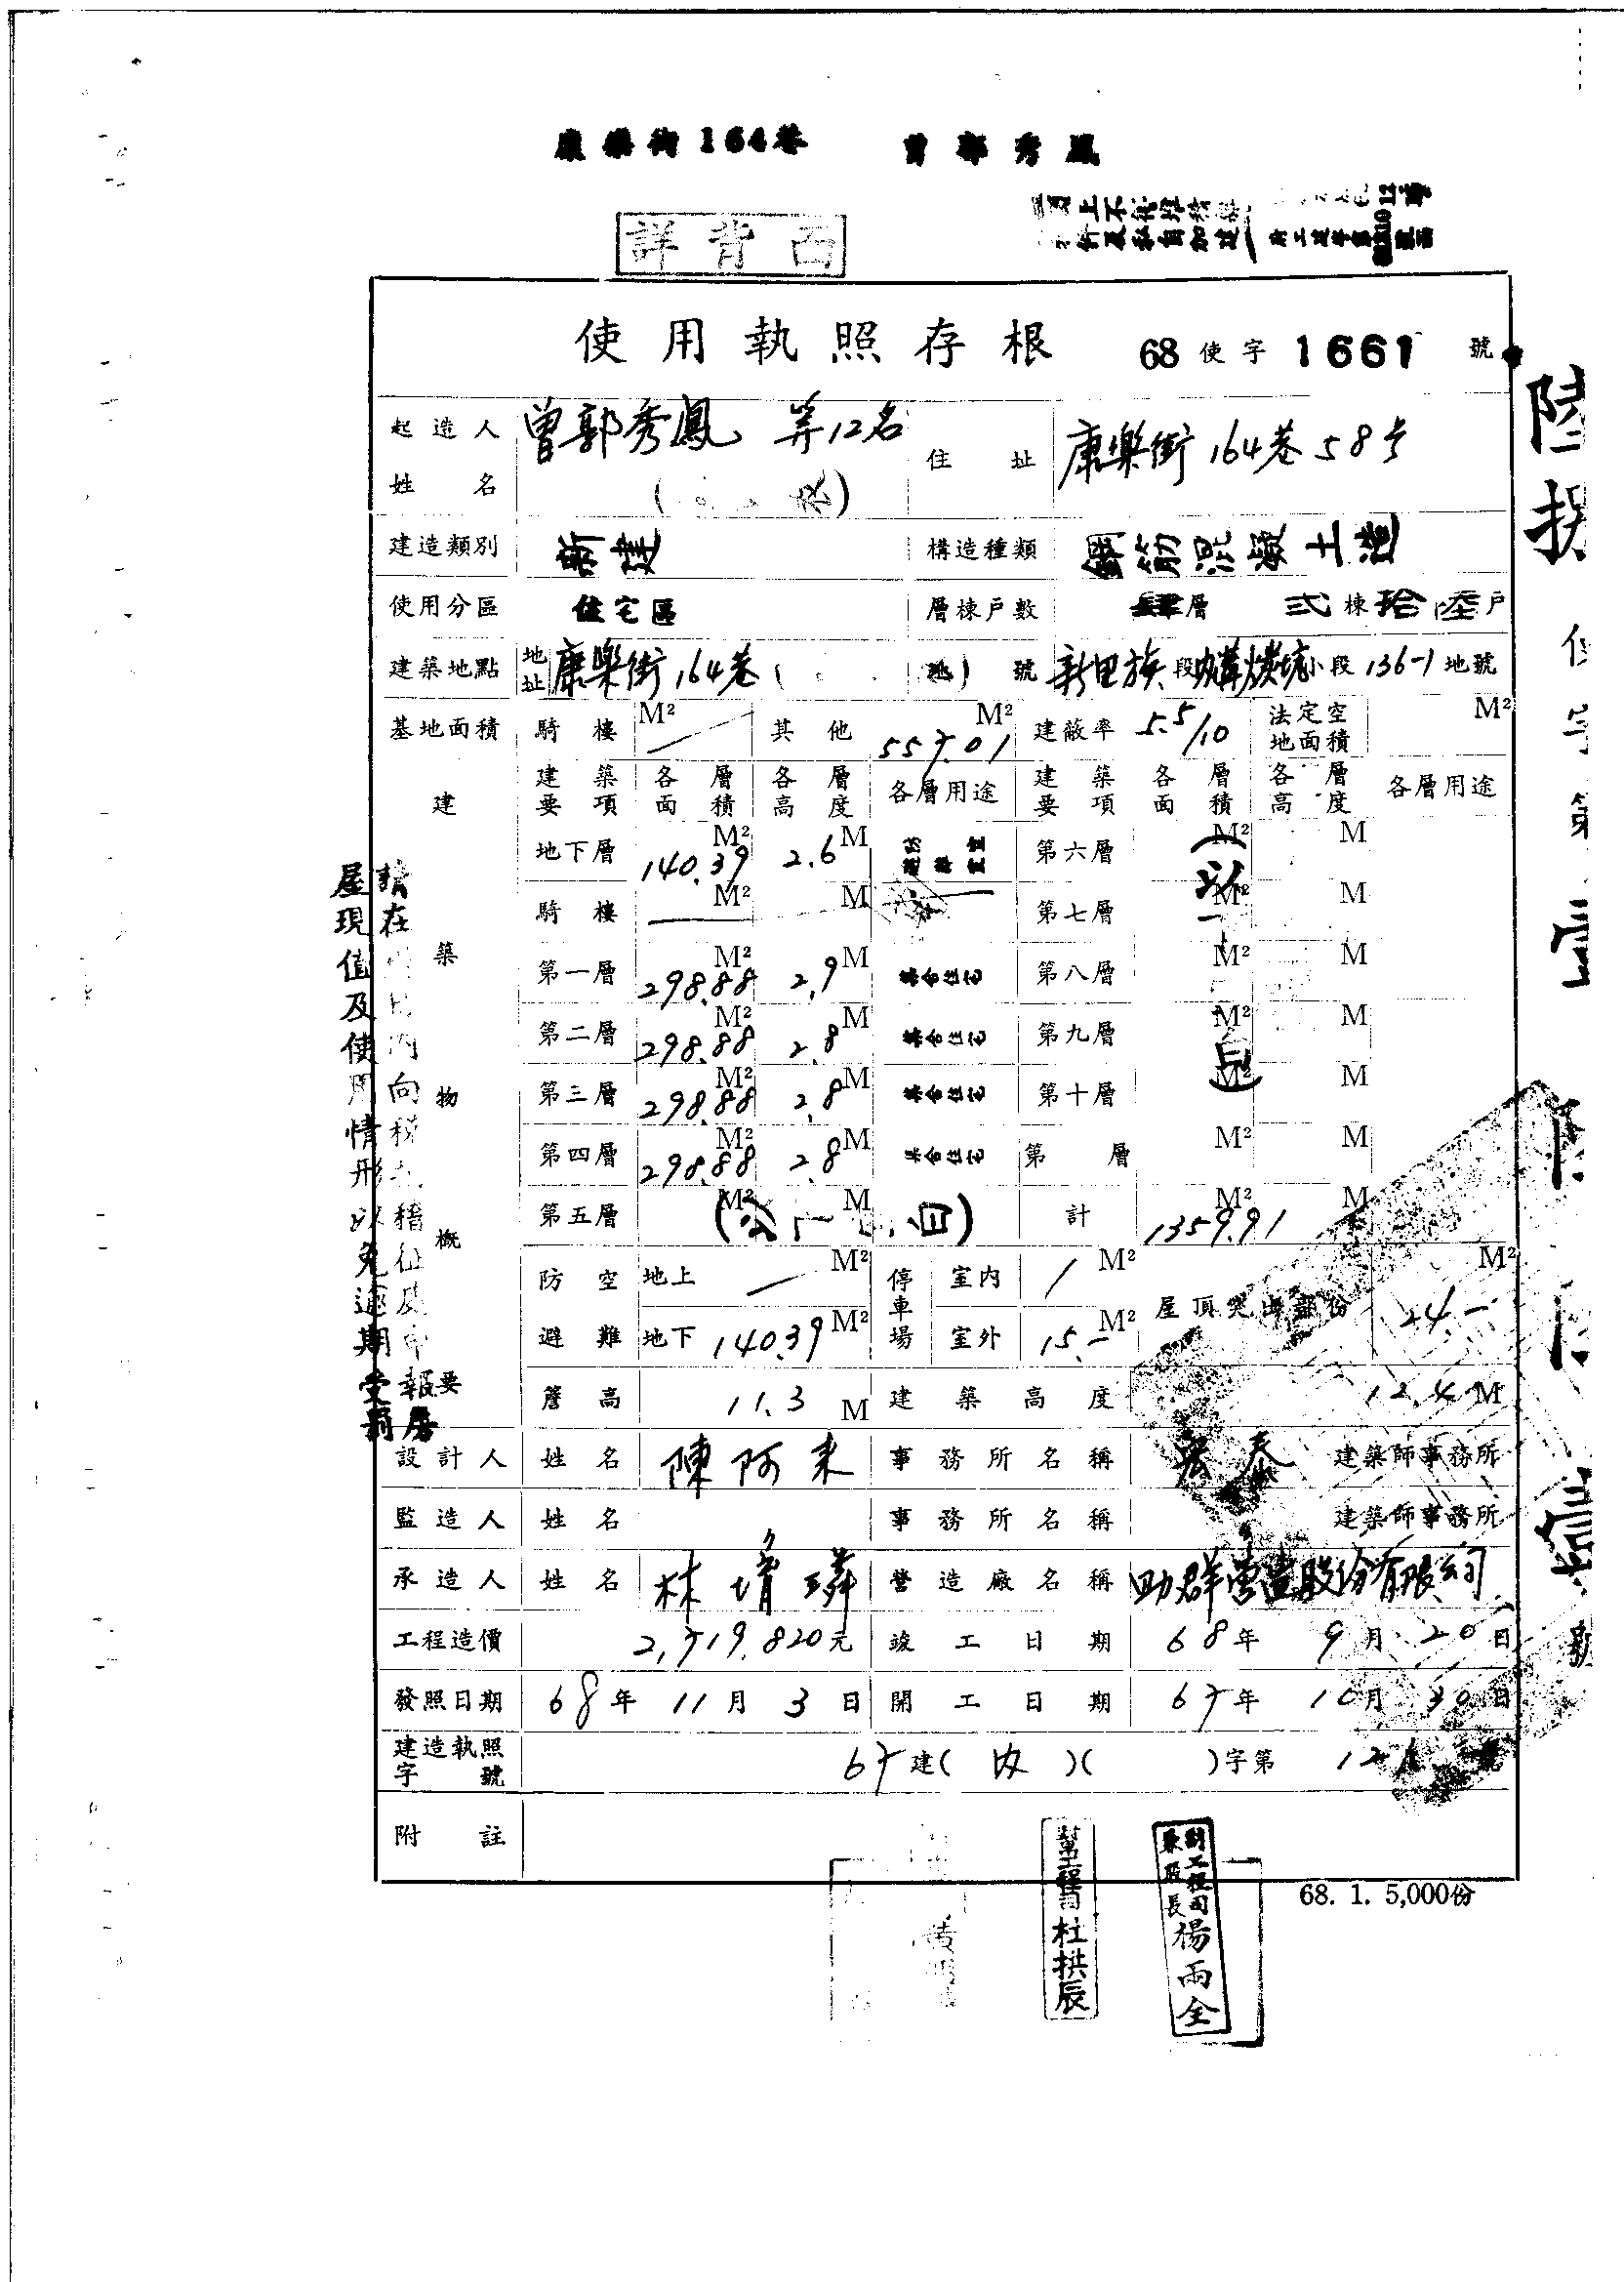 康樂街164巷 曾郭秀鳳
詳背面
使用執照存根 68使字1661號
起造人姓名 曾郭秀鳳 等12名
住址 康樂街164巷58号
建造類別 新建 構造種類 鋼筋混凝土造
使用分區 住宅區 層棟戶數 肆層 弍棟拾陸戶
建築地點 地址 康樂街164巷 號 新里族段 小段136-1地號
基地面積 騎樓 M² 其他 557.01 M² 建蔽率 5.5/10 法定空地面積 M²
建築物概要
建築要項 各層面積 各層高度 各層用途 建築要項 各層面積 各層高度 各層用途
地下層 140.39 M² 2.6 M 第六層 M² M
騎樓 M² M 第七層 M² M
第一層 298.88 M² 2.9 M 集合住宅 第八層 M² M
第二層 298.88 M² 2.8 M 集合住宅 第九層 M² M
第三層 298.88 M² 2.8 M 集合住宅 第十層 M² M
第四層 298.88 M² 2.8 M 集合住宅 第 層 M² M
第五層 M² M 計 1359.91 M² M
防空避難 地上 M² 停車場 室內 M² 屋頂突出部份 24.- M²
地下 140.39 M² 室外 15.- M²
簷高 11.3 M 建築高度 12.4 M
設計人 姓名 陳阿来 事務所名稱 宏泰 建築師事務所
監造人 姓名 事務所名稱 建築師事務所
承造人 姓名 林 璘 營造廠名稱 助群營造股份有限公司
工程造價 2,719,820元 竣工日期 68年9月20日
發照日期 68年11月3日 開工日期 67年10月30日
建造執照字號 67建(內)( )字第 號
附註
68. 1. 5,000份
幫工程司 杜拱辰
副工程司兼股長 楊雨全
請在 日內向稅 稽征處申報房
屋現值及使用情形以免逾期受罰
陸捌使字第 號